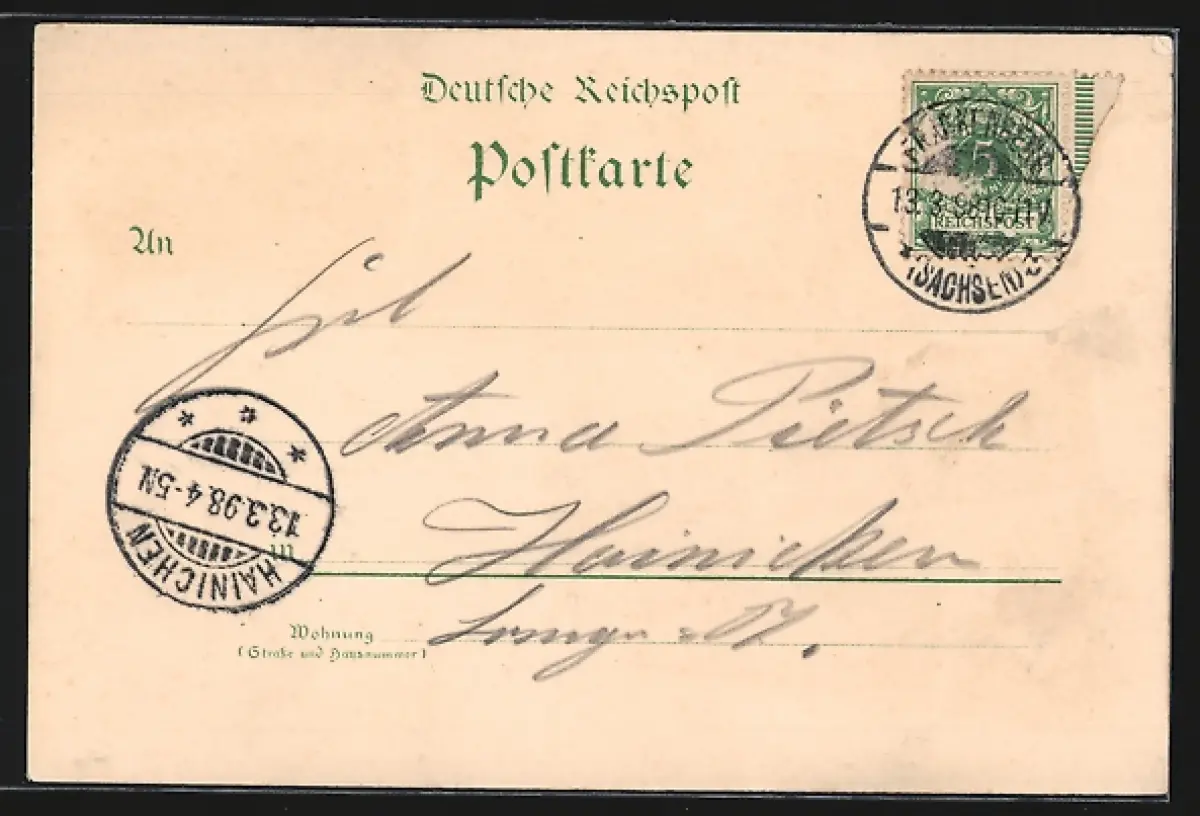 Deutsche Reichspost
Postkarte
An
FRANKENBERG
5
13.3.98 10-11V
REICHSPOST
(SACHSEN) c
Frl
Anna Pietsch
in Hainichen
Wohnung
(Straße und Hausnummer)
13.3.98. 4-5N.
HAINICHEN